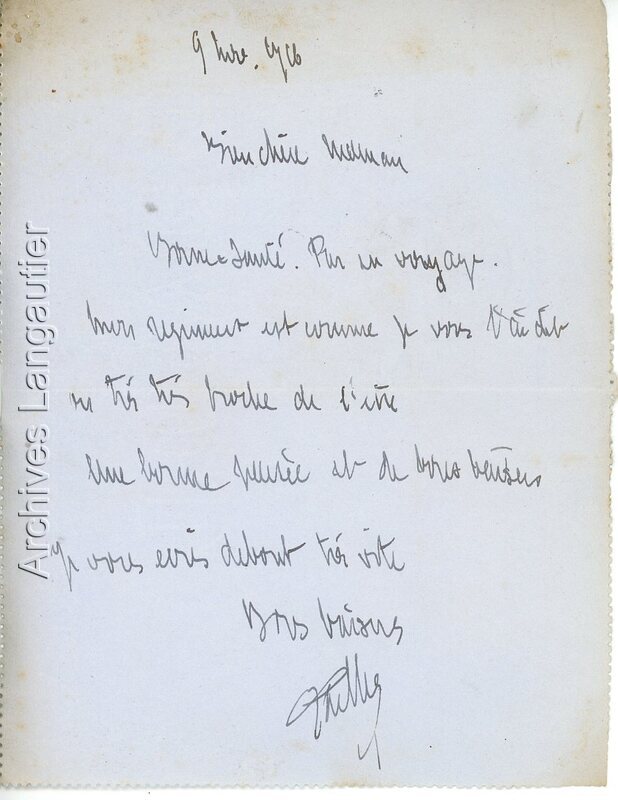 9 bre. 1916
Bien chère Maman
Bonne santé. Pas en voyage.
Mon régiment est comme je vous l'ai dit
ou très très proche de l'être
Une bonne pensée et de bons baisers
Je vous écris debout très vite
Bons baisers
Archives Langautier